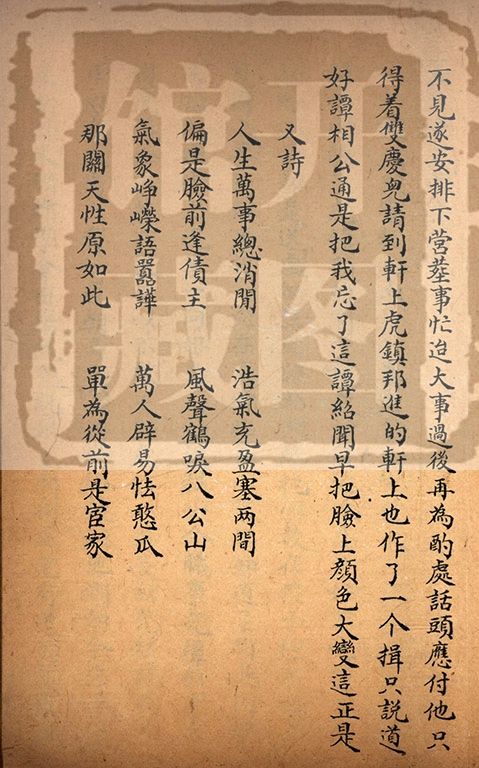 不見遂安排下營塟事忙迨大事過後再為酌處話頭應付他只
得着雙慶兒請到軒上虎鎮邦進的軒上也作了一个揖只説道
好譚相公通是把我忘了這譚紹聞早把臉上顔色大變這正是
又詩
人生萬事總消閒 浩氣充盈塞两間
偏是臉前逢債主 風聲鶴唳八公山
氣象崢嶸語囂譁 萬人辟易怯憨瓜
那關天性原如此 單為從前是宦家